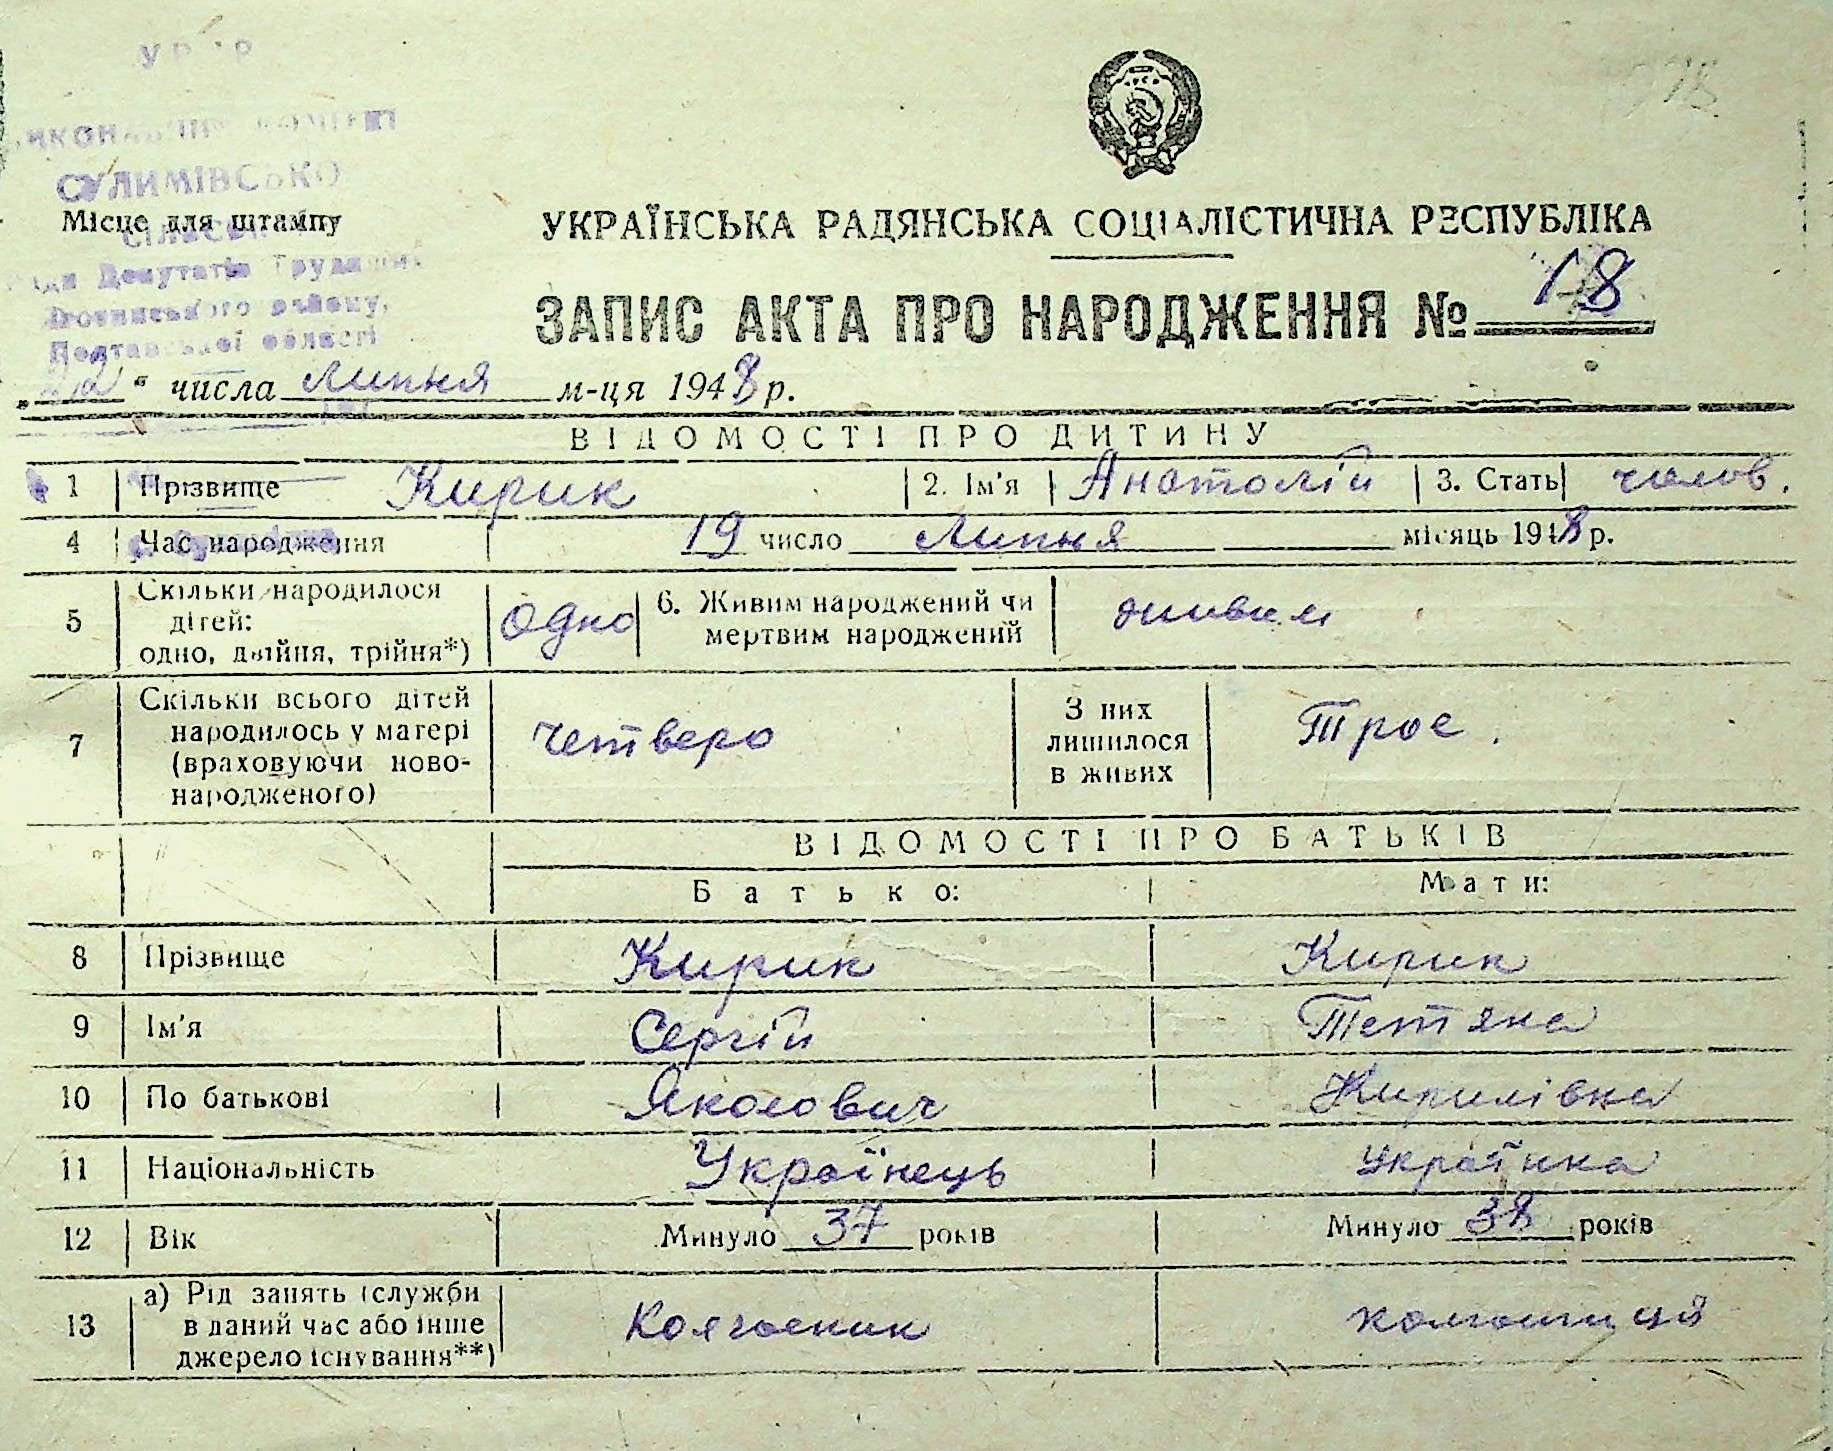 УРСР
СУЛИМІВСЬКО
Місце для штампу
Ради Депутатів Трудящих
району,
Полтавської області
УКРАЇНСЬКА РАДЯНСЬКА СОЦІАЛІСТИЧНА РЕСПУБЛІКА
ЗАПИС АКТА ПРО НАРОДЖЕННЯ № 18
" числа Липня м-ця 1948 р.
ВІДОМОСТІ ПРО ДИТИНУ
1 Прізвище Кирик 2. Ім'я Анатолій 3. Стать чолов.
4 Час народження 19 число Липня місяць 1948 р.
5 Скільки народилося дітей: одно, двійня, трійня*) одно 6. Живим народжений чи мертвим народжений живим
7 Скільки всього дітей народилось у матері (враховуючи ново-народженого) четверо З них лишилося в живих Троє.
ВІДОМОСТІ ПРО БАТЬКІВ
Батько: Мати:
8 Прізвище Кирик Кирик
9 Ім'я Сергій Тетяна
10 По батькові Якович Кирилівна
11 Національність Українець Українка
12 Вік Минуло 37 років Минуло 38 років
13 а) Рід занять (служби в даний час або інше джерело існування**) Колгосник